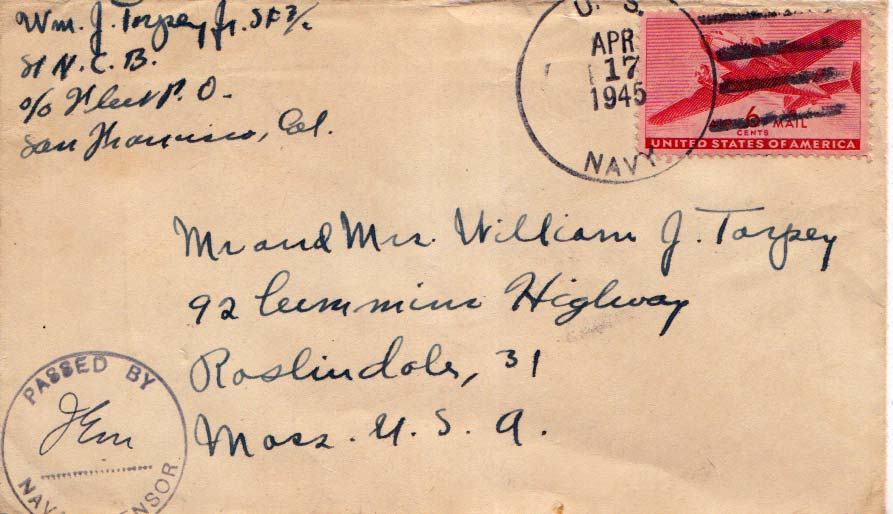 Wm. J. Torpey Jr. SF 3/c
81 N.C.B.
c/o Fleet P.O.
San Francisco, Cal.
U. S.
APR
17
1945
NAVY
6
CENTS
MAIL
UNITED STATES OF AMERICA
Mr and Mrs. William J. Torpey
92 Cummins Highway
Roslindale, 31
Mass. U. S. A.
PASSED BY
JEm